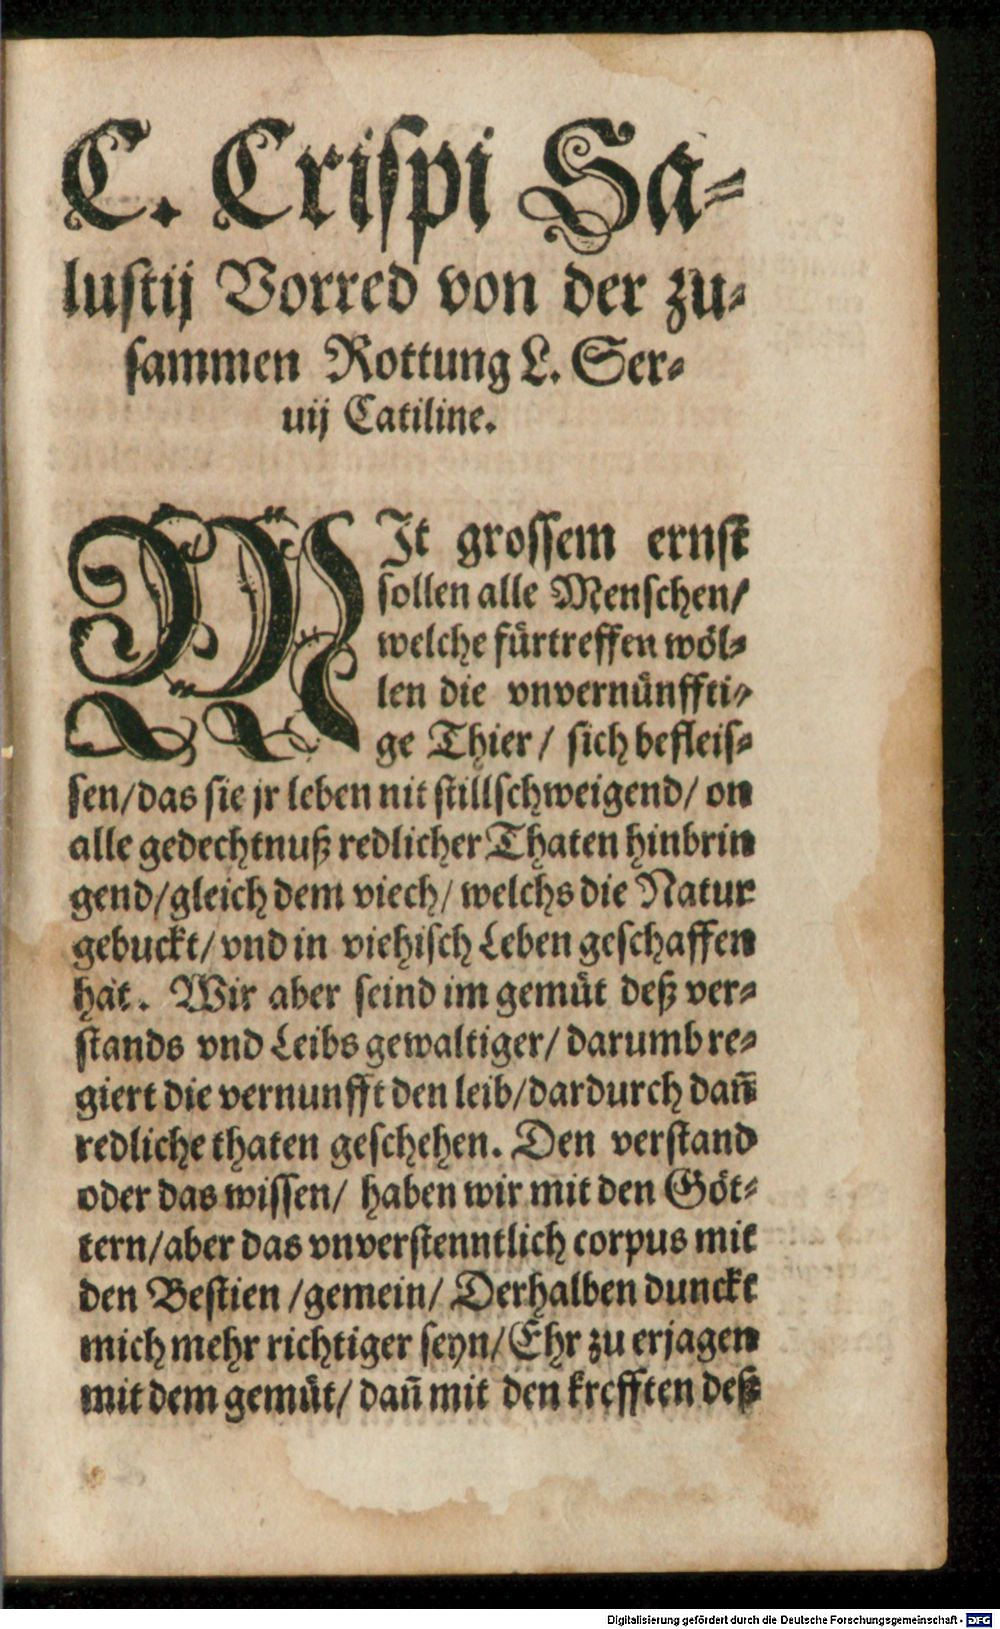 C. Crispi Sa-
lustij Vorred von der zu-
sammen Rottung L. Ser-
uij Catiline.
MIt grossem ernst
sollen alle Menschen/
welche fürtreffen wöl-
len die vnvernünffti-
ge Thier/ sich befleis-
sen/das sie jr leben nit stillschweigend/ on
alle gedechtnuß redlicher Thaten hinbrin
gend/gleich dem viech/ welchs die Natur
gebuckt/ vnd in viehisch Leben geschaffen
hat. Wir aber seind im gemüt deß ver-
stands vnd Leibs gewaltiger/ darumb re-
giert die vernunfft den leib/dardurch dañ
redliche thaten geschehen. Den verstand
oder das wissen/ haben wir mit den Göt-
tern/aber das vnverstenntlich corpus mit
den Bestien /gemein/ Derhalben dunckt
mich mehr richtiger seyn/Ehr zu erjagen
mit dem gemüt/ dañ mit den krefften deß
Digitalisierung gefördert durch die Deutsche Forschungsgemeinschaft - DFG